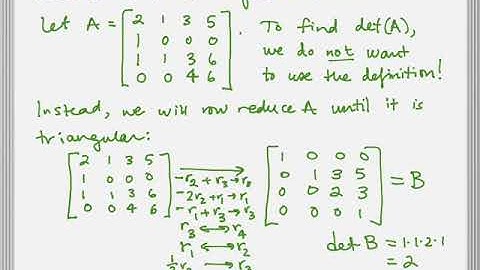 Let A = [2 1 3 5
1 0 0 0
1 1 3 6
0 0 4 6]. To find det(A),
we do not want
to use the definition!
Instead, we will row reduce A until it is
triangular:
[2 1 3 5
1 0 0 0
1 1 3 6
0 0 4 6]
-r₂+r₃→r₃
-2r₂+r₁→r₁
-r₁+r₃→r₃
r₃↔r₄
r₁↔r₂
½r₃→r₃
[1 0 0 0
0 1 3 5
0 0 2 3
0 0 0 1] = B
det B = 1·1·2·1
= 2